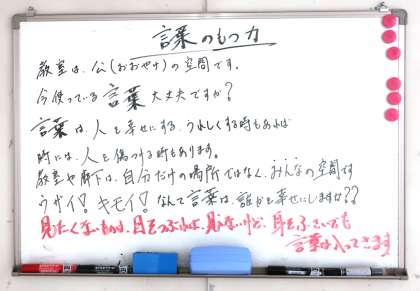 言葉のもつ力
教室は、公(おおやけ)の空間です。
今使っている言葉大丈夫ですか?
言葉は、人を幸せにする、うれしくする時もあれば
時には、人を傷つける時もあります。
教室や廊下は、自分だけの場所ではなく、みんなの空間です
ウザイ!キモイ!なんて言葉は、誰かを幸せにしますか??
見たくないものは、目をつぶれば、見えないけど、耳をふさいでも
言葉は入ってきます